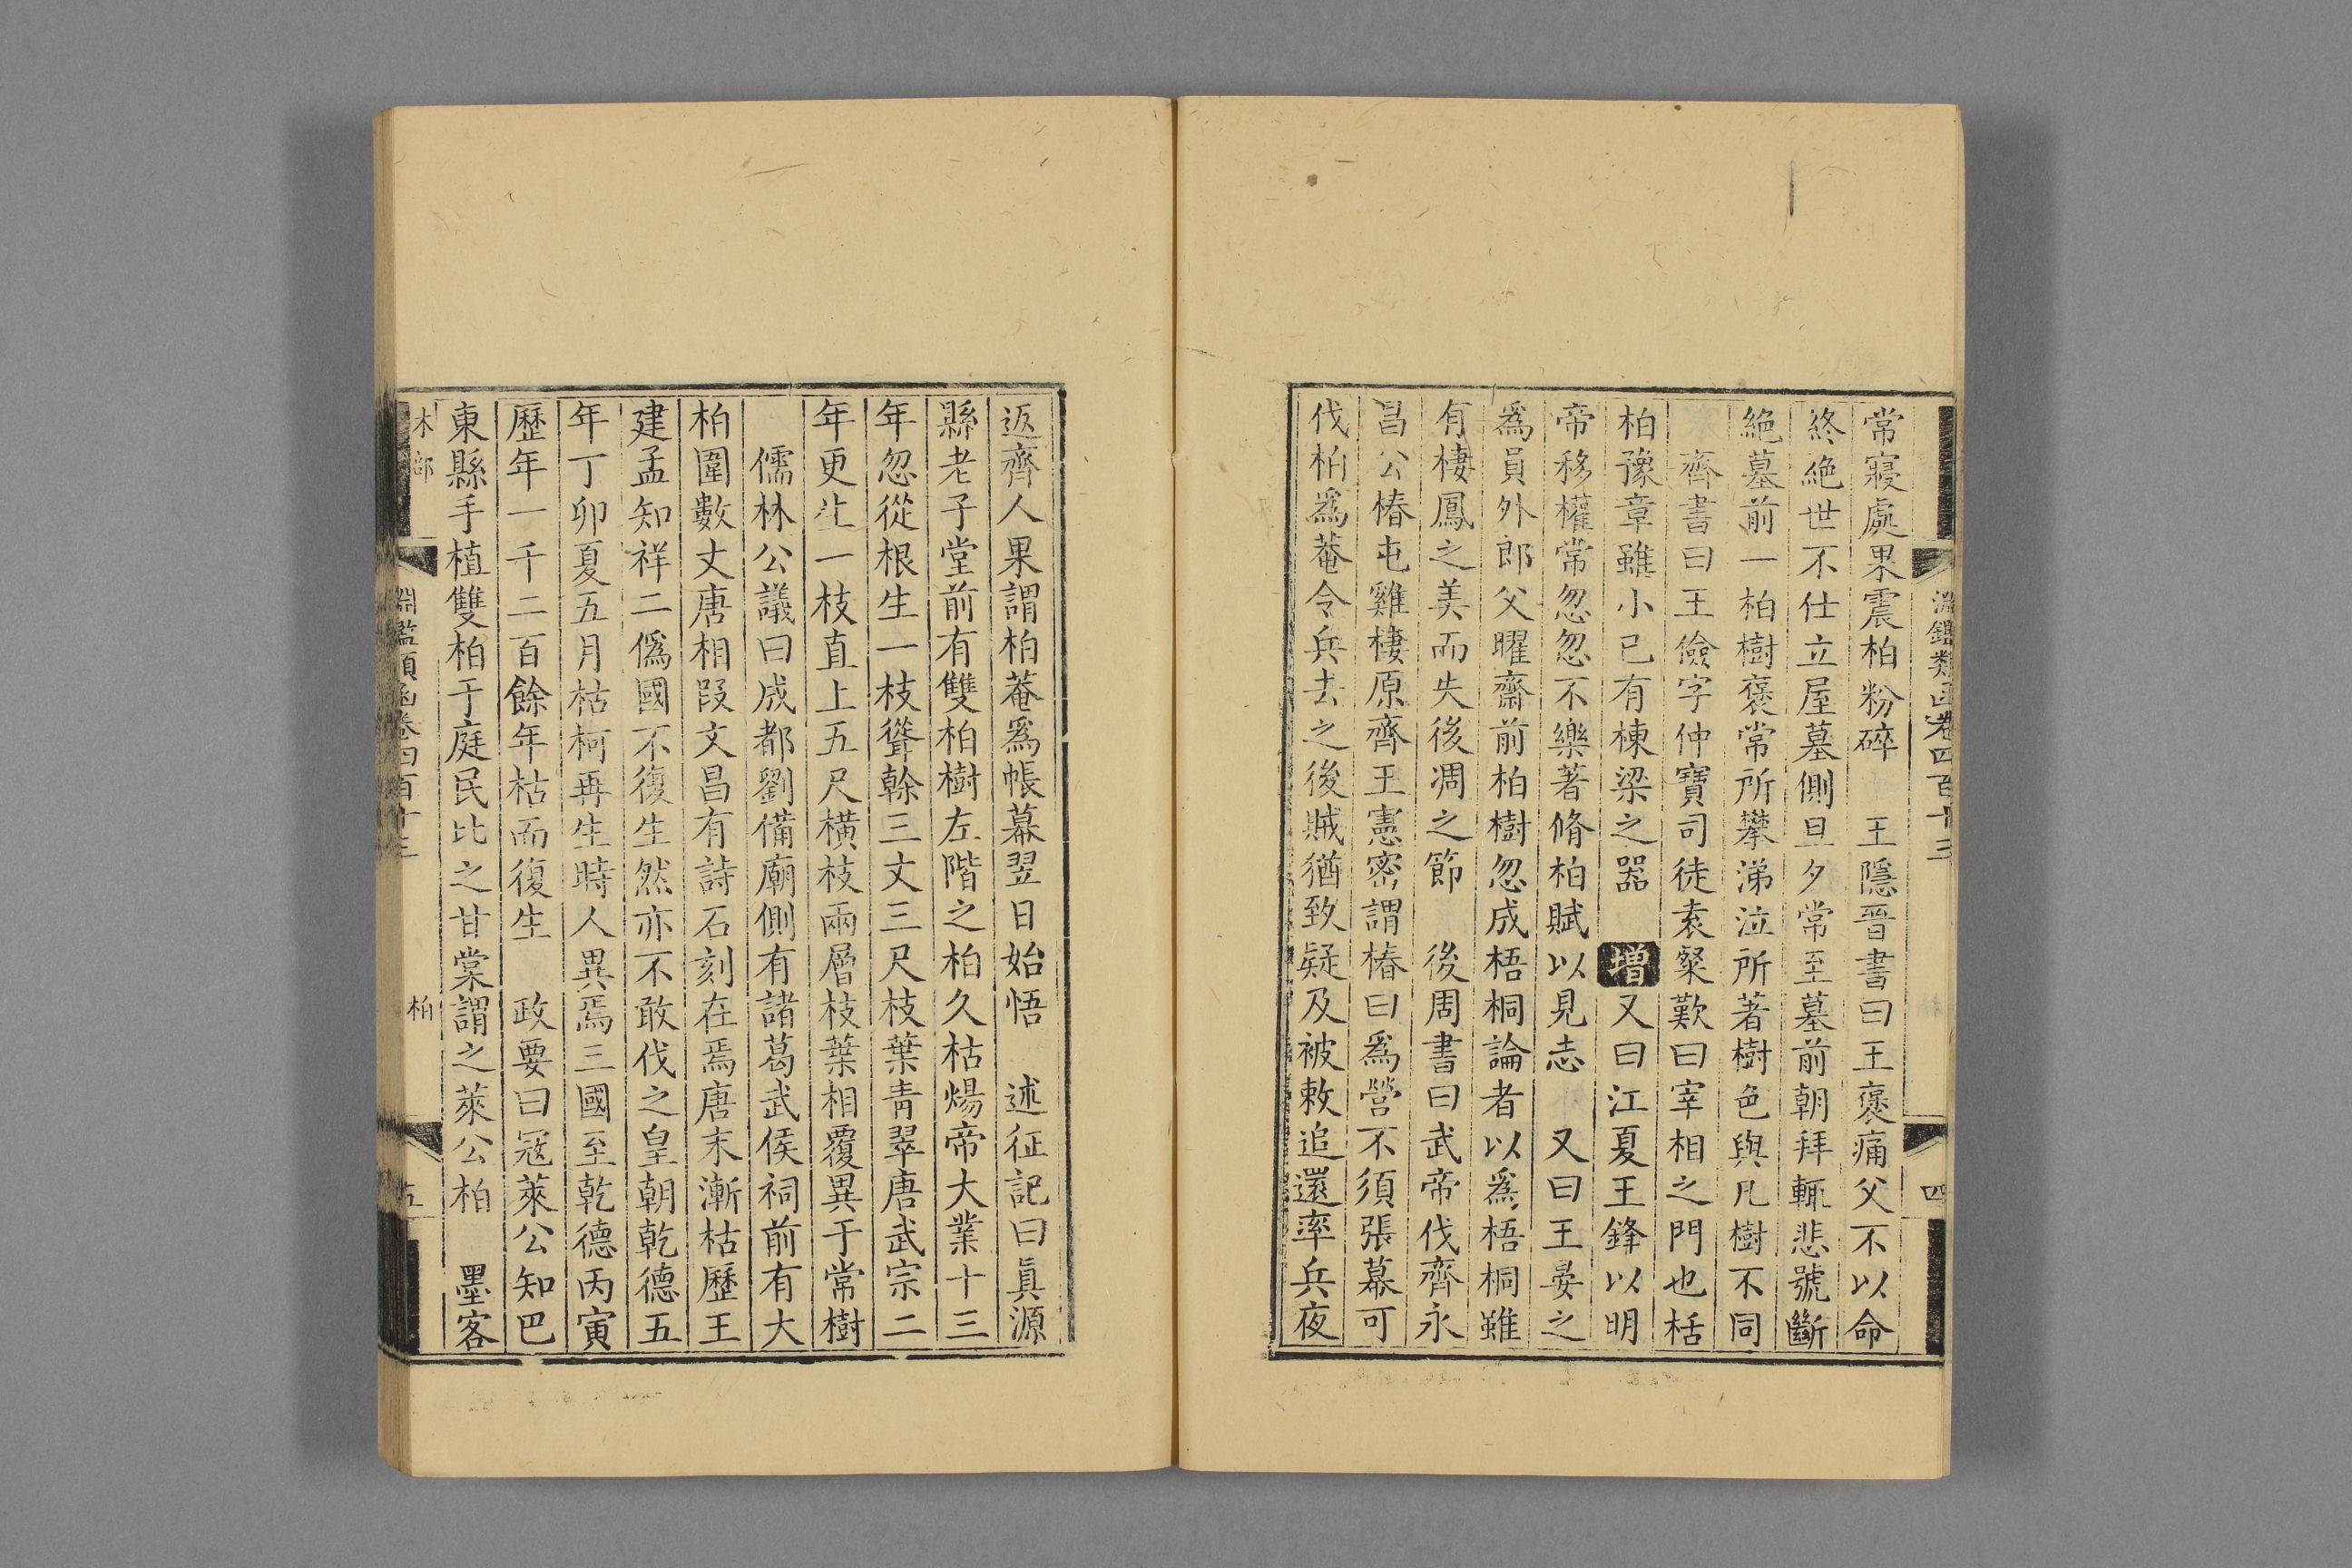 淵鑑類函卷四百十三
四
常寢處果震柏粉碎　王隱晉書曰王褒痛父不以命
終絶世不仕立屋墓側旦夕常至墓前朝拜輒悲號斷
絶墓前一柏樹褒常所攀涕泣所著樹色與凡樹不同
齊書曰王儉字仲寶司徒袁粲歎曰宰相之門也栝
柏豫章雖小已有棟梁之器　增又曰江夏王鋒以明
帝移權常忽忽不樂著脩柏賦以見志　又曰王晏之
爲員外郎父曜齋前柏樹忽成梧桐論者以爲梧桐雖
有棲鳳之美而失後凋之節　後周書曰武帝伐齊永
昌公椿屯雞棲原齊王憲密謂椿曰爲營不須張幕可
伐柏爲菴令兵去之後賊猶致疑及被敕追還率兵夜
返齊人果謂柏菴爲帳幕翌日始悟　述征記曰眞源
縣老子堂前有雙柏樹左階之柏久枯煬帝大業十三
年忽從根生一枝聳榦三丈三尺枝葉青翠唐武宗二
年更生一枝直上五尺橫枝兩層枝葉相覆異于常樹
儒林公議曰成都劉備廟側有諸葛武侯祠前有大
柏圍數丈唐相段文昌有詩石刻在焉唐末漸枯歷王
建孟知祥二僞國不復生然亦不敢伐之皇朝乾德五
年丁卯夏五月枯柯再生時人異焉三國至乾德丙寅
歷年一千二百餘年枯而復生　政要曰寇萊公知巴
東縣手植雙柏于庭民比之甘棠謂之萊公柏　墨客
木部
淵鑑類函卷四百十三
柏
五